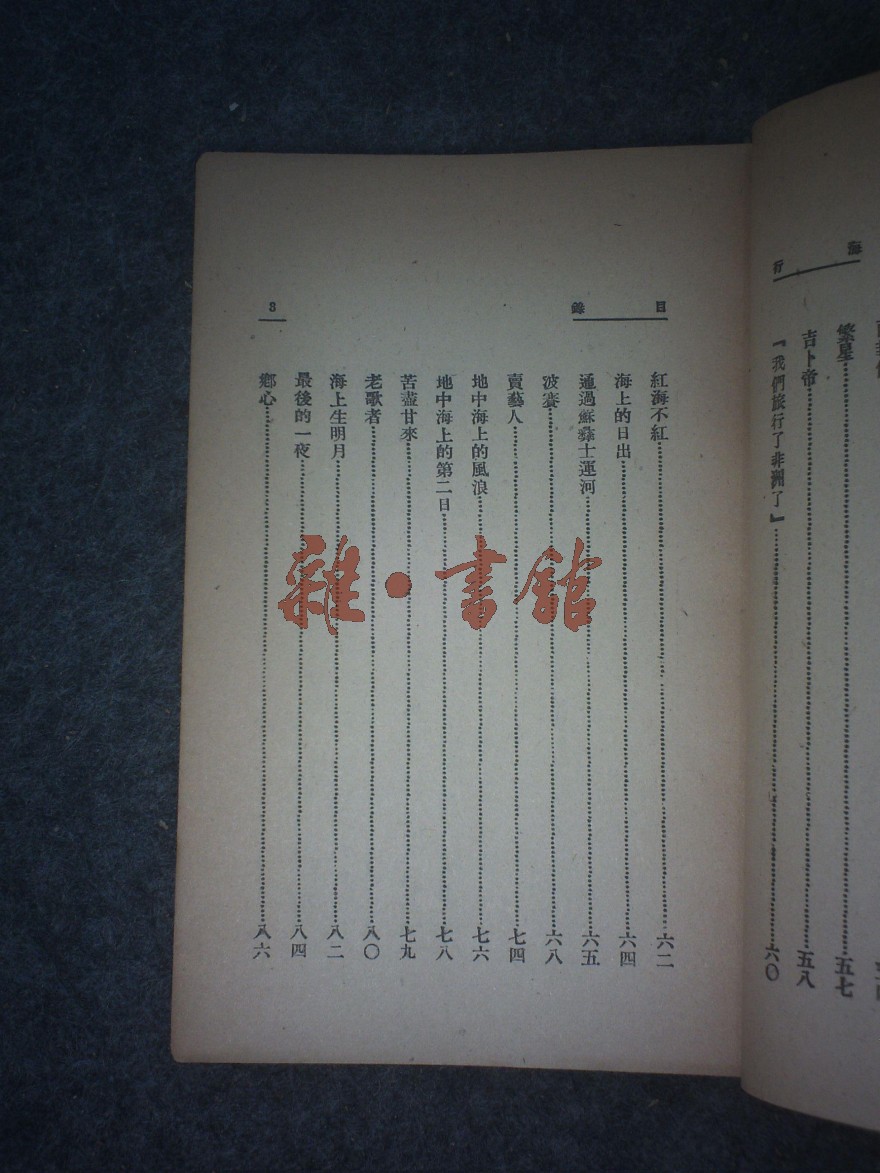 海行
繁星 五七
吉卜帝 五八
『我們旅行了非洲了』 六〇
目錄
紅海不紅 六二
海上的日出 六四
通過蘇彝士運河 六五
波賽 六八
賣藝人 七四
地中海上的風浪 七六
地中海上的第二日 七八
苦盡甘來 七九
老歌者 八〇
海上生明月 八二
最後的一夜 八四
鄉心 八六
3
雜·書館